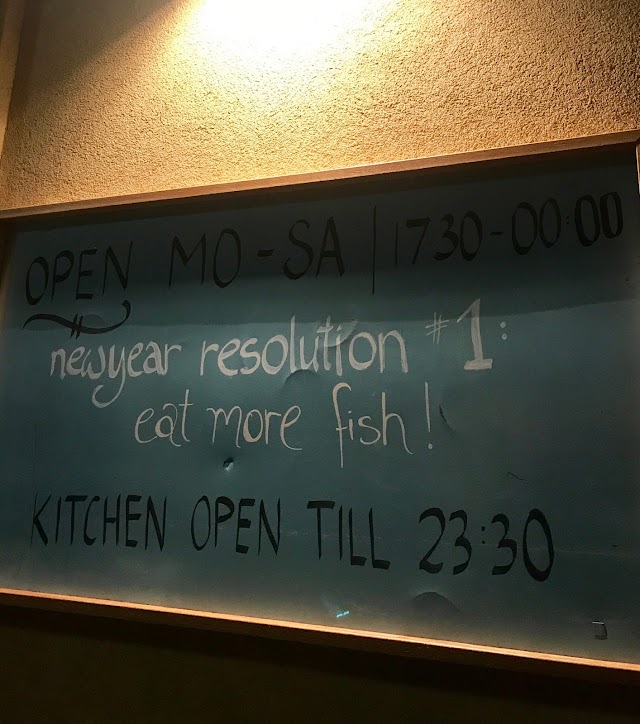 OPEN MO-SA | 1730-00:00
newyear resolution #1:
eat more fish!
KITCHEN OPEN TILL 23:30